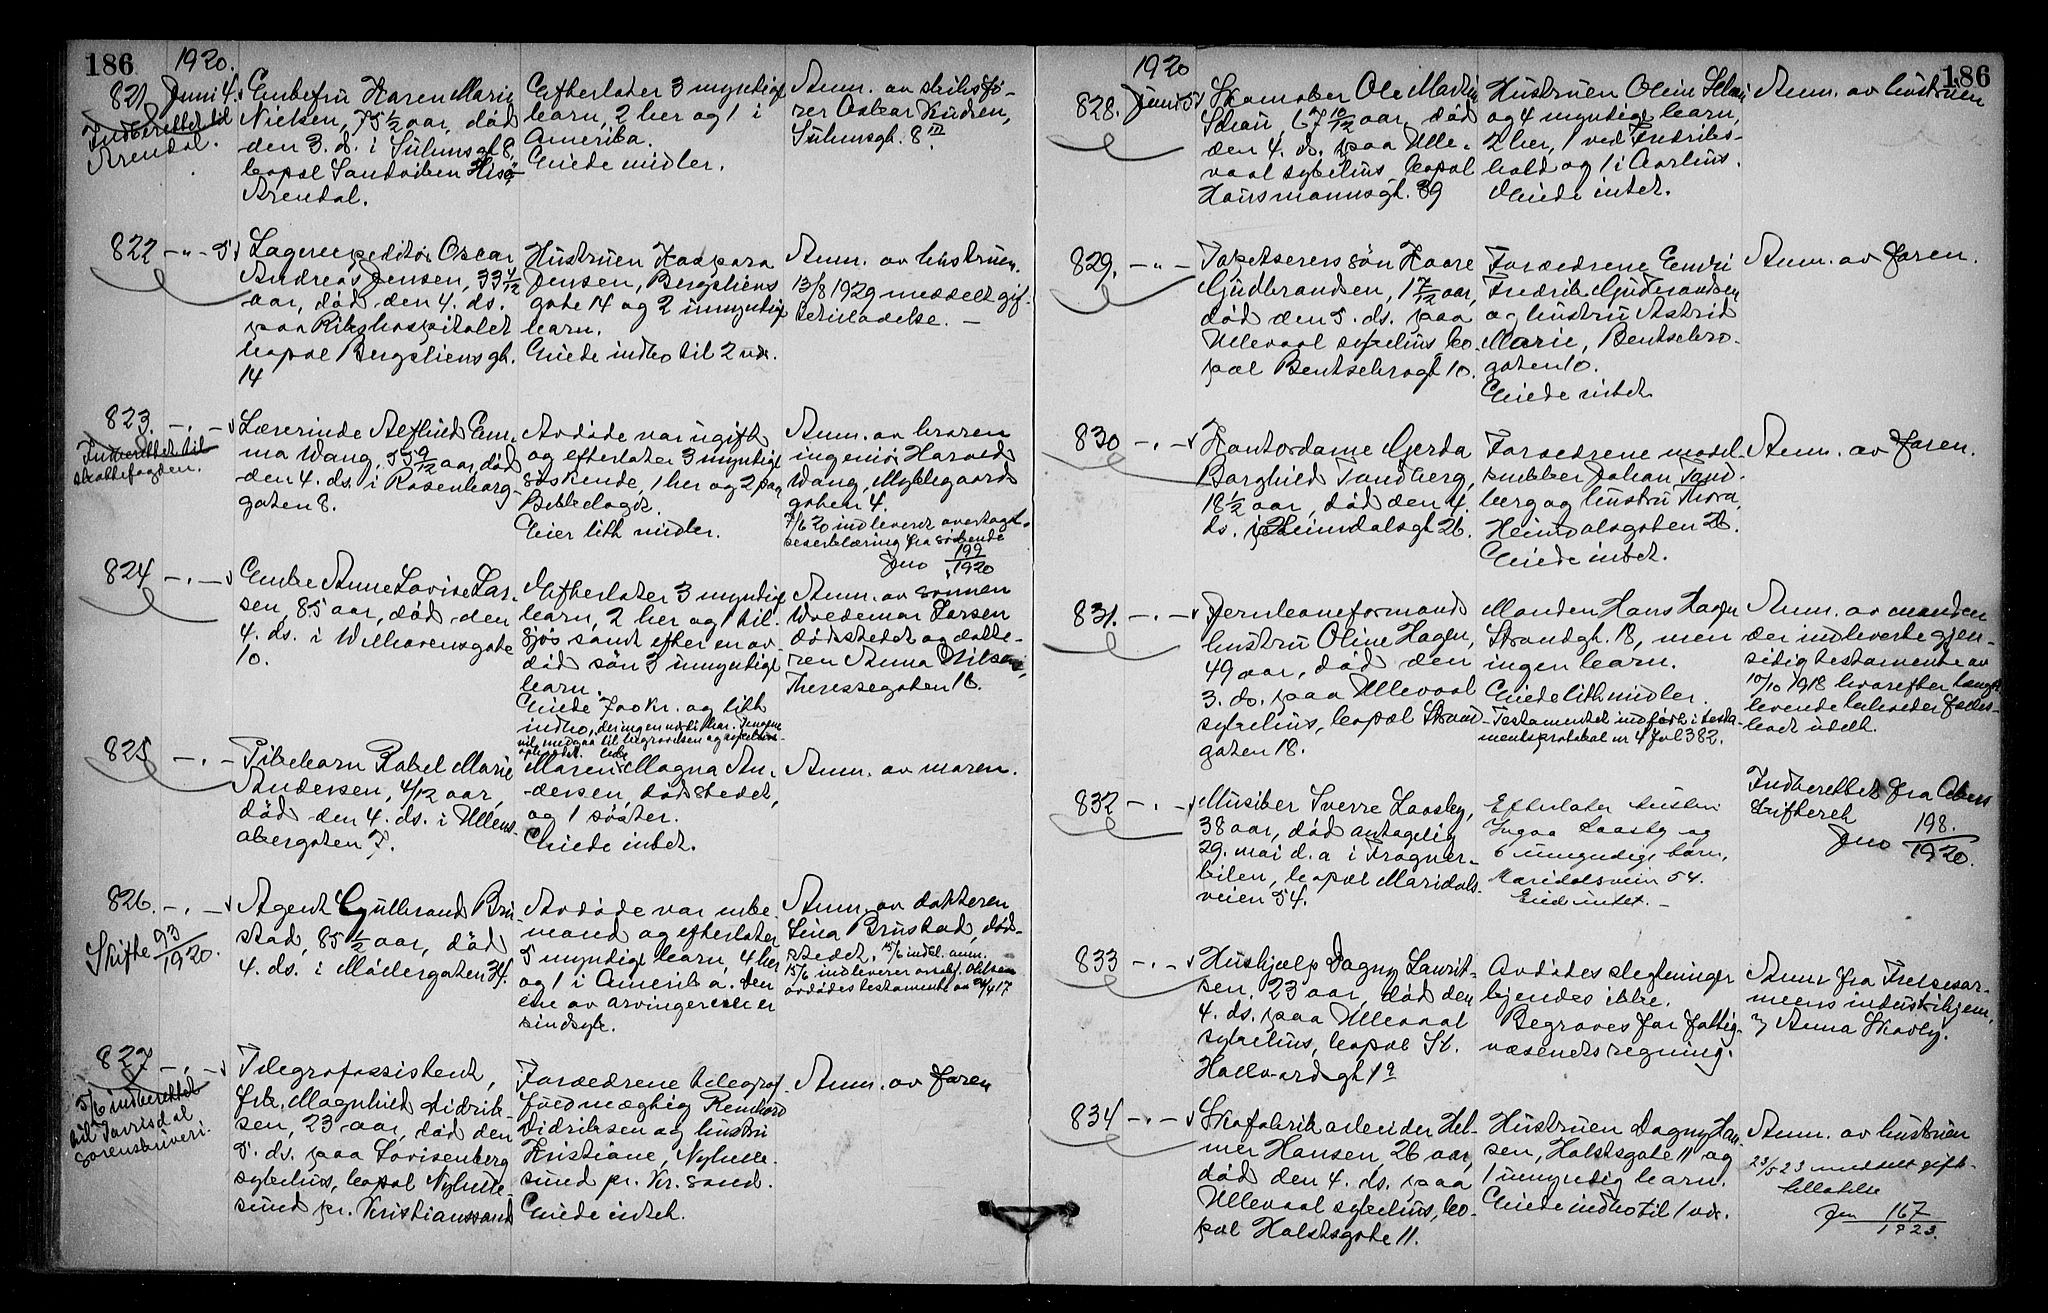 186
1920.
821 Juni 4.
Indberettet til
Arendal.
Enkefru Karen Marie
Nielsen, 75 1/2 aar, død
den 3. d. i Suhmsgt 8,
bopæl Sandviken Hisø,
Arendal.
Efterlater 3 myndige
barn, 2 her og 1 i
Amerika.
Eiede midler.
Anm. av skibsfø-
rer Oskar Knudsen,
Suhmsgt. 8 III.
822 -"- 5
Lagerexpeditør Oscar
Andreas Jensen, 33 4/12
aar, død den 4. ds.
paa Rikshospitalet
bopæl Bergsliensgt.
14
Hustruen Kaspara
Jensen, Bergsliens
gate 14 og 2 umyndige
barn.
Eiede indbo til 2 vær.
Anm. av hustruen.
13/8 1929 meddelt gif-
tetilladelse. -
823. -"-
Indberettet til
skattefogden.
Lærerinde Alfhild Em-
ma Wang, 55 9/12 aar, død
den 4. ds. i Rosenborg-
gaten 8.
Avdøde var ugift
og efterlater 3 myndige
søskende, 1 her og 2 paa
Bækkelaget.
Eier litt midler.
Anm. av broren
ingeniør Harald
Wang, Møllegaards
gaten 4.
7/6 20 indleveret overtagel-
seserklæring fra søskende
Jno 199/1920
824 -"-
Enke Anne Lovise Lar-
sen, 85 aar, død den
4. ds. i Wilhavensgate
10.
Efterlater 3 myndige
barn, 2 her og 1 til-
sjøs samt efter en av-
død søn 3 umyndige
barn.
Eiede 700 kr. og litt
indbo, der ingen verdi har. Pengene
vil medgaa til begravelsen og sykehus-
opholdet.
Anm. av sønnen
Woldemar Larsen
dødsstedet og datte-
ren Anna Nilsen,
Theresesgaten 16.
825 -"-
Pikebarn Rakel Marie
Andersen, 4/12 aar,
død den 4. ds. i Ullens-
akergaten 7.
Moren Magna An-
dersen, dødsstedet,
og 1 søster.
Eiede intet.
Anm. av moren.
826. -"-
Skifte 93/1920.
Agent Gulbrand Bru-
stad, 85 1/2 aar, død
4. ds. i Mødergaten 34.
Avdøde var enke-
mand og efterlater
5 myndige barn, 4 her
og 1 i Amerika. Den
ene av arvingerne er
sindsyk.
Anm. av datteren
Lina Brustad, døds-
stedet. 15/6 indl. anm.
15/6 indleverer
avdødes testamente av 24/4 17
827 -"-
5/6 indberettet
til Torrisdal
sorenskriveri.
Telegrafassistent,
frk. Magnhild Didrik-
sen, 23 aar, død den
5. ds. paa Lovisenberg
sykehus, bopæl Nyhelle-
sund pr. Kristianssand
Forældrene telegraf-
fuldmægtig Reinhard
Didriksen og hustru
Kristiane, Nyhelle-
sund pr. Kr. sand.
Eiede intet.
Anm. av faren
186
1920
828. Juni 5
Skomaker Ole Martin
Schau, 67 10/12 aar, død
den 4. ds. paa Ulle-
vaal sykehus, bopæl
Hausmannsgt. 39
Hustruen Oline Schau
og 4 myndige barn,
2 her, 1 ved Fredriks-
hald og 1 i Aarhus.
Eiede intet.
Anm. av hustruen
829. -"-
Tapetserers søn Kaare
Gudbrandsen, 1 7/12 aar,
død den 5. ds. paa
Ullevaal sykehus bo-
pæl Bentsebrogt 10.
Forældrene Endri
Fredrik Gudbrandsen
og hustru Astrid
Marie, Bentsebro-
gaten 10.
Eiede intet.
Anm. av faren.
830 -"-
Kontordame Gerda
Borghild Tandberg,
18 1/2 aar, død den 4.
ds. i Heimdalsgt 26.
Forældrene model-
snekker Johan Tand-
berg og hustru Thora,
Heimdalsgaten 26.
Eiede intet.
Anm. av faren.
831. -"-
Jernbaneformands
hustru Oline Hagen,
49 aar, død den
3. ds. paa Ullevaal
sykehus, bopæl Strand-
gaten 18.
Manden Hans Hagen
Strandgt. 18, men
ingen barn.
Eiede litt midler.
Testamentet indført i testa-
mentsprotokol nr 4 fol 382.
Anm. av manden
der indleverte gjen-
sidig testamente av
10/10 1918 hvorefter længst
levende beholder fælles-
boet udelt.
832 -"-
Musiker Sverre Laasby,
38 aar, død antagelig
29. mai d.a i Frogner-
kilen, bopæl Maridals-
veien 54.
Efterlater hustru
Yngva Laasby og
6 umyndige barn,
Maridalsveien 54.
Eiede intet. -
Indberettet fra Akers
Skifteret
Jno 198./1920.
833 -"-
Hushjælp Dagny Laurit-
sen, 23 aar, død den
4. ds. paa Ullevaal
sykehus, bopæl St.
Hallvardsgt 1a
Avdødes slegtninger
kjendes ikke.
Begraves for fattig-
væsenets regning.
Anm fra Frelsesar-
meens industrihjem,
v Anna Skovly.
834 -"-
Skofabrikarbeider Hel-
mer Hansen 26 aar,
død den 4. ds. paa
Ullevaal sykehus, bo-
pæl Holstsgate 11.
Hustruen Dagny Han-
sen, Holstsgate 11 og
1 umyndig barn.
Eiede indbo til 1 vær.
Anm. av hustruen
23/5 23 meddelt gifte-
tilladelse
Jno 167/1923.